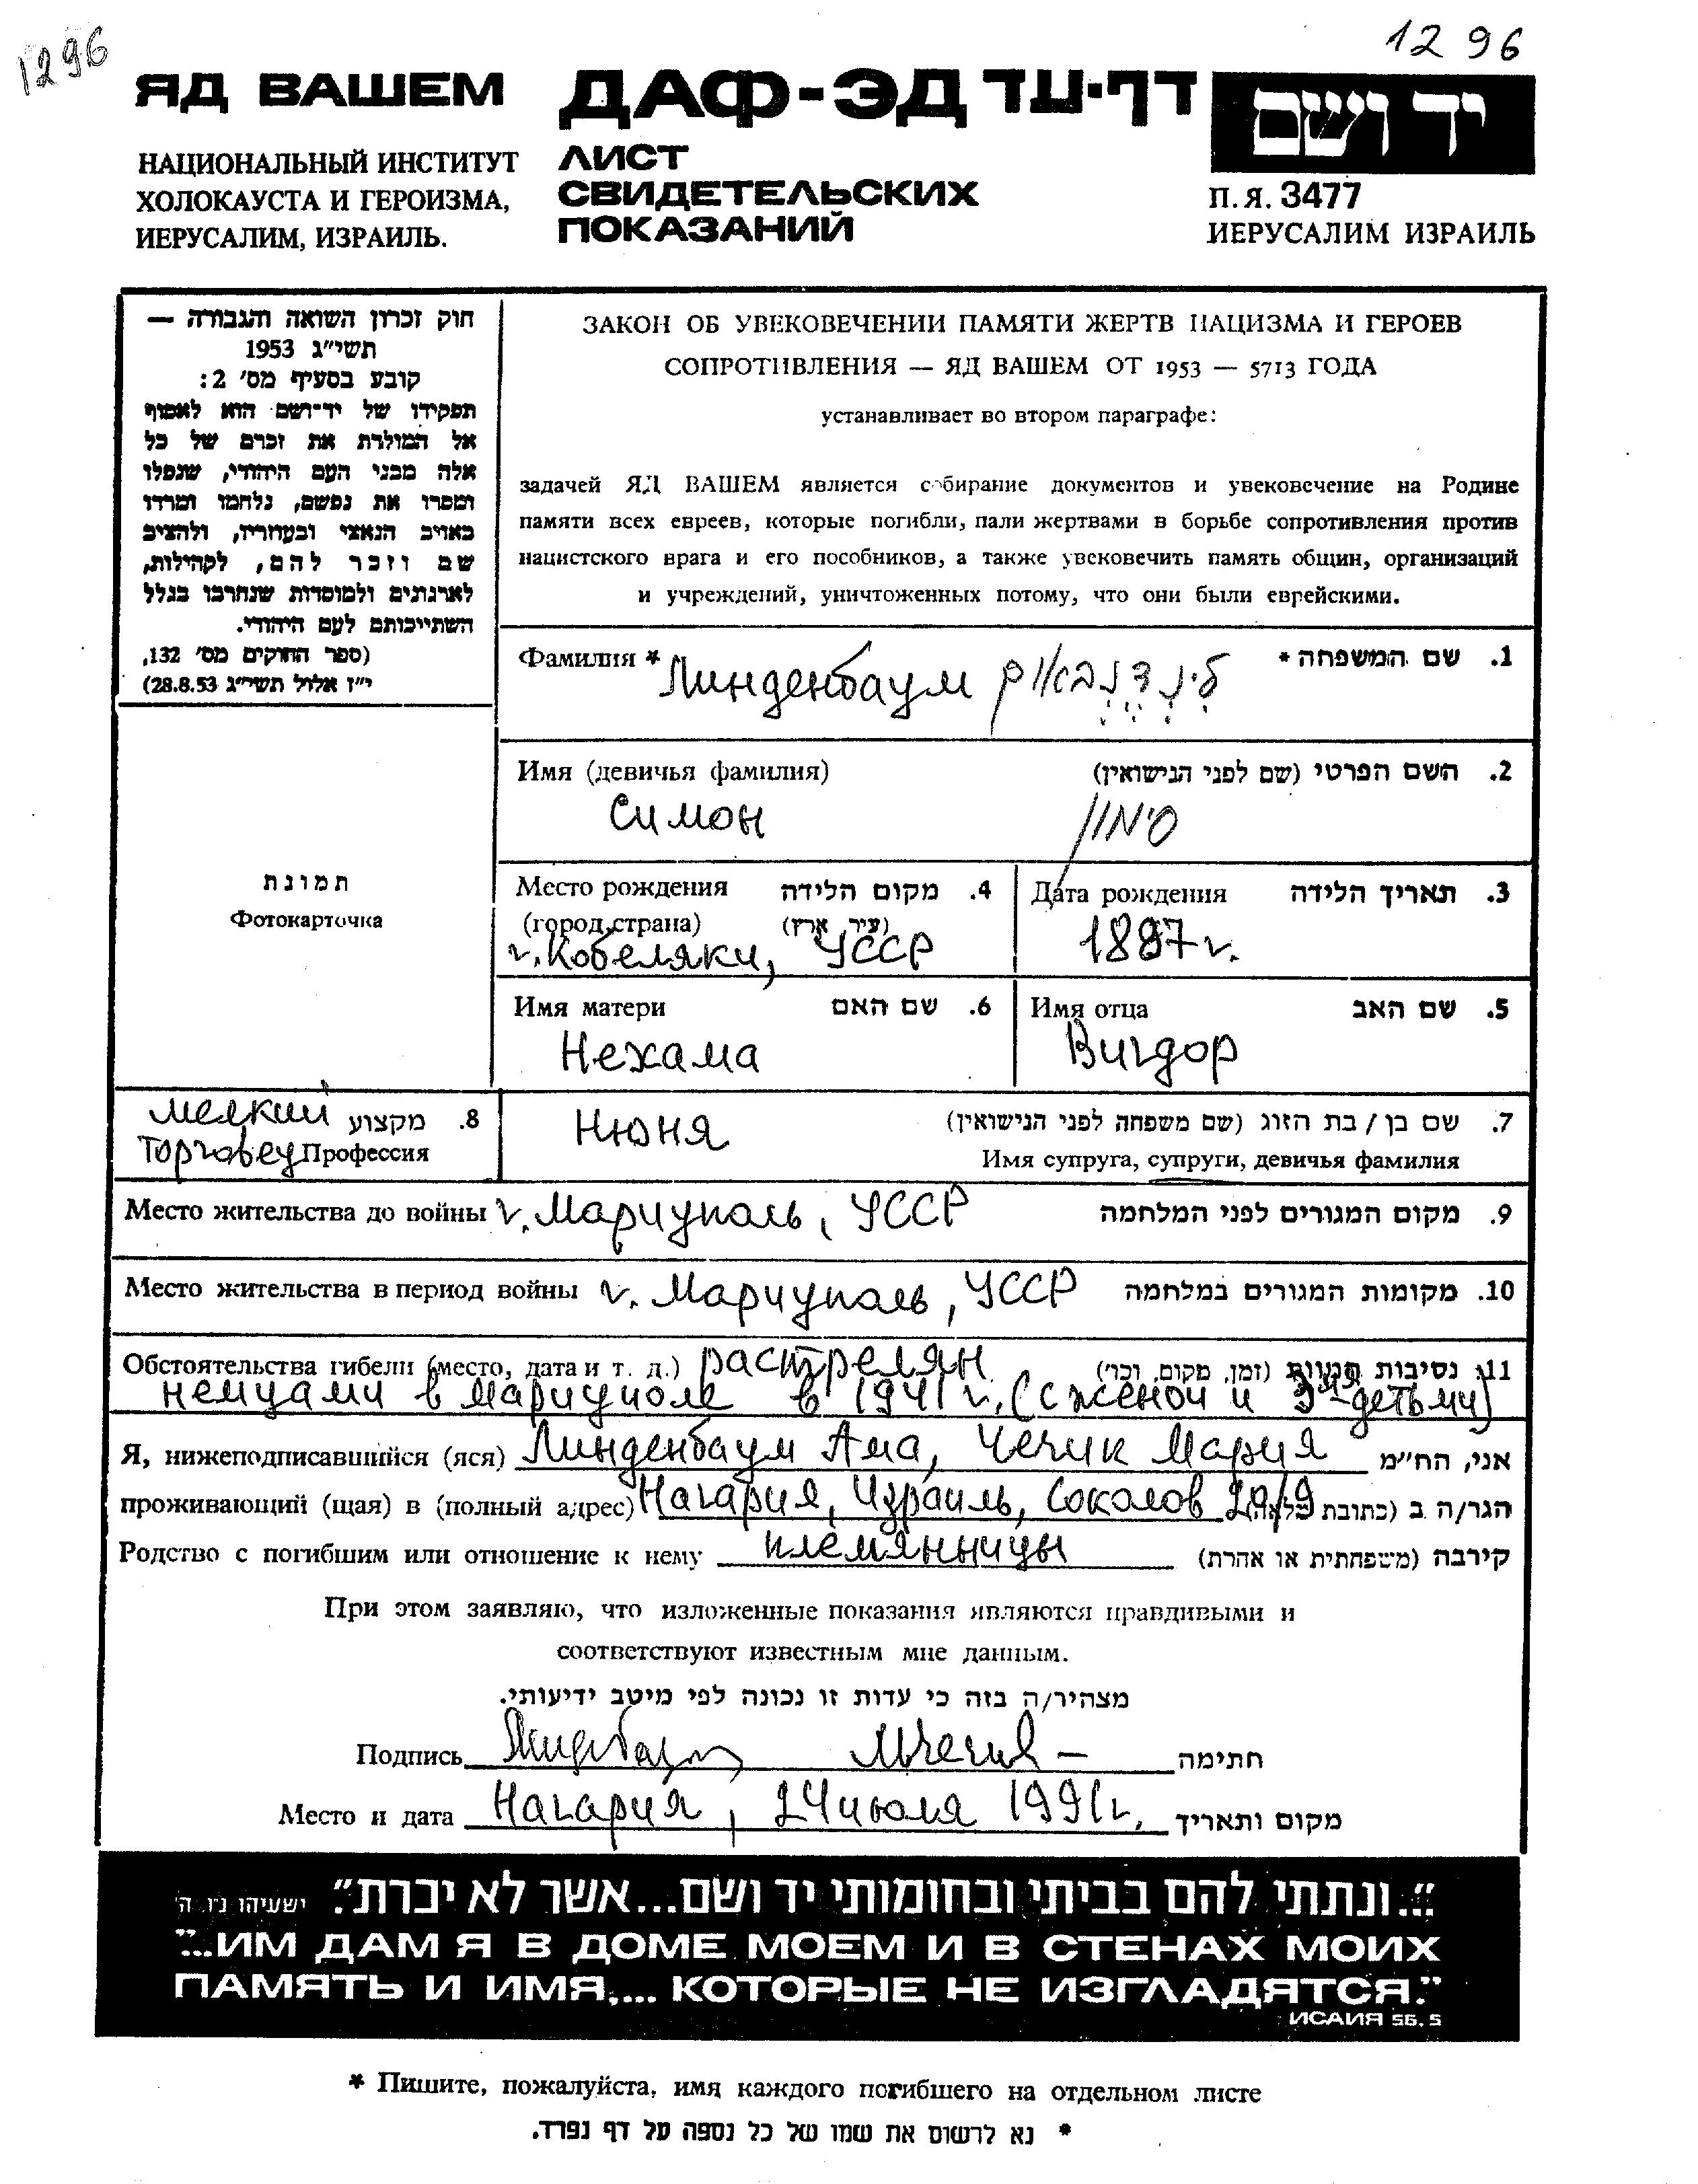 1296
12 96
ЯД ВАШЕМ
ДАФ-ЭД דף-עד
יד ושם
НАЦИОНАЛЬНЫЙ ИНСТИТУТ
ХОЛОКАУСТА И ГЕРОИЗМА,
ИЕРУСАЛИМ, ИЗРАИЛЬ.
ЛИСТ
СВИДЕТЕЛЬСКИХ
ПОКАЗАНИЙ
П.Я. 3477
ИЕРУСАЛИМ ИЗРАИЛЬ
חוק זכרון השואה והגבורה —
תשי״ג 1953
קובע בסעיף מס׳ 2:
תפקידו של יד־ושם הוא לאסוף
אל המולדת את זכרם של כל
אלה מבני העם היהודי, שנפלו
ומסרו את נפשם, נלחמו ומרדו
באויב הנאצי ובעוזריו, ולהציב
שם וזכר להם, לקהילות,
לארגונים ולמוסדות שנחרבו בגלל
השתייכותם לעם היהודי.
(ספר החוקים מס׳ 132,
י״ז אלול תשי״ג 28.8.53)
ЗАКОН ОБ УВЕКОВЕЧЕНИИ ПАМЯТИ ЖЕРТВ НАЦИЗМА И ГЕРОЕВ
СОПРОТИВЛЕНИЯ — ЯД ВАШЕМ ОТ 1953 — 5713 ГОДА
устанавливает во втором параграфе:
задачей ЯД ВАШЕМ является собирание документов и увековечение на Родине
памяти всех евреев, которые погибли, пали жертвами в борьбе сопротивления против
нацистского врага и его пособников, а также увековечить память общин, организаций
и учреждений, уничтоженных потому, что они были еврейскими.
Фамилия * Линденбаум לינדנבאום 1. שם המשפחה *
Имя (девичья фамилия) 2. השם הפרטי (שם לפני הנישואין)
Симон סימון
תמונת
Фотокарточка
Место рождения 4. מקום הלידה
(город, страна) (עיר, ארץ)
г. Кобеляки, УССР
Дата рождения 3. תאריך הלידה
1887 г.
Имя матери 6. שם האם
Нехама
Имя отца 5. שם האב
Вигдор
мелкий 8. מקצוע
торговец Профессия
Нюня 7. שם בן / בת הזוג (שם משפחה לפני הנישואין)
Имя супруга, супруги, девичья фамилия
Место жительства до войны г. Мариуполь, УССР 9. מקום המגורים לפני המלחמה
Место жительства в период войны г. Мариуполь, УССР 10. מקומות המגורים במלחמה
Обстоятельства гибели (место, дата и т. д.) растрелян 11. נסיבות המוות (זמן, מקום, וכו׳)
немцами в Мариуполе в 1941 г. (с женой и 3-мя детьми)
Я, нижеподписавшийся (яся) Линденбаум Ама, Чечик Мария אני, הח״מ
проживающий (щая) в (полный адрес) Нагария, Израиль, Соколов 20/9 הגר/ה ב (כתובת מלאה)
Родство с погибшим или отношение к нему племянницы קירבה (משפחתית או אחרת)
При этом заявляю, что изложенные показания являются правдивыми и
соответствуют известным мне данным.
מצהיר/ה בזה כי עדות זו נכונה לפי מיטב ידיעותי.
Подпись חתימה
Место и дата Нагария, 24 июля 1991 г. מקום ותאריך
״...ונתתי להם בביתי ובחומותי יד ושם...אשר לא יכרת״. ישעיהו נ״ו ה׳
"...ИМ ДАМ Я В ДОМЕ МОЕМ И В СТЕНАХ МОИХ
ПАМЯТЬ И ИМЯ,... КОТОРЫЕ НЕ ИЗГЛАДЯТСЯ."
ИСАИЯ 56, 5
* Пишите, пожалуйста, имя каждого погибшего на отдельном листе
* נא לרשום את שמו של כל נספה על דף נפרד.